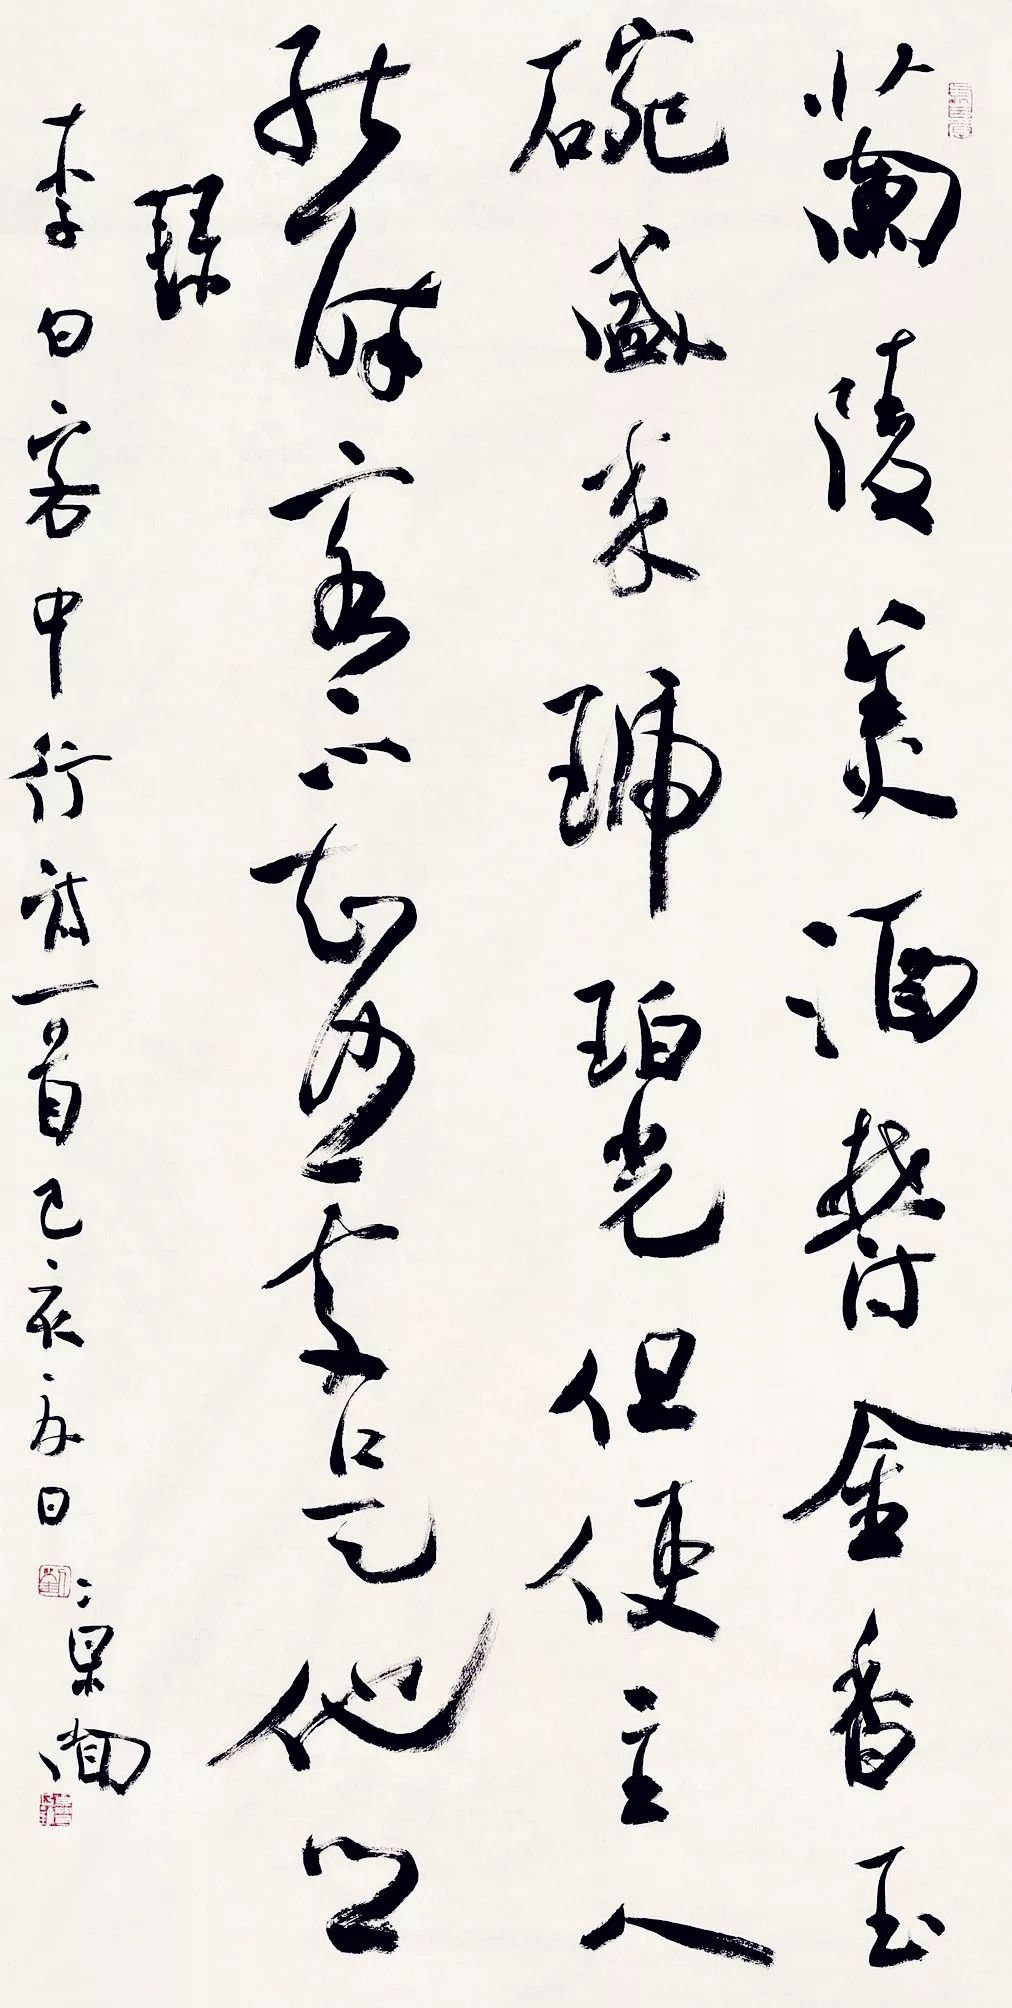 蘭陵美酒鬱金香玉
碗盛來琥珀光但使主人
能醉客不知何處是他鄉
録
李白客中行詩一首己亥日